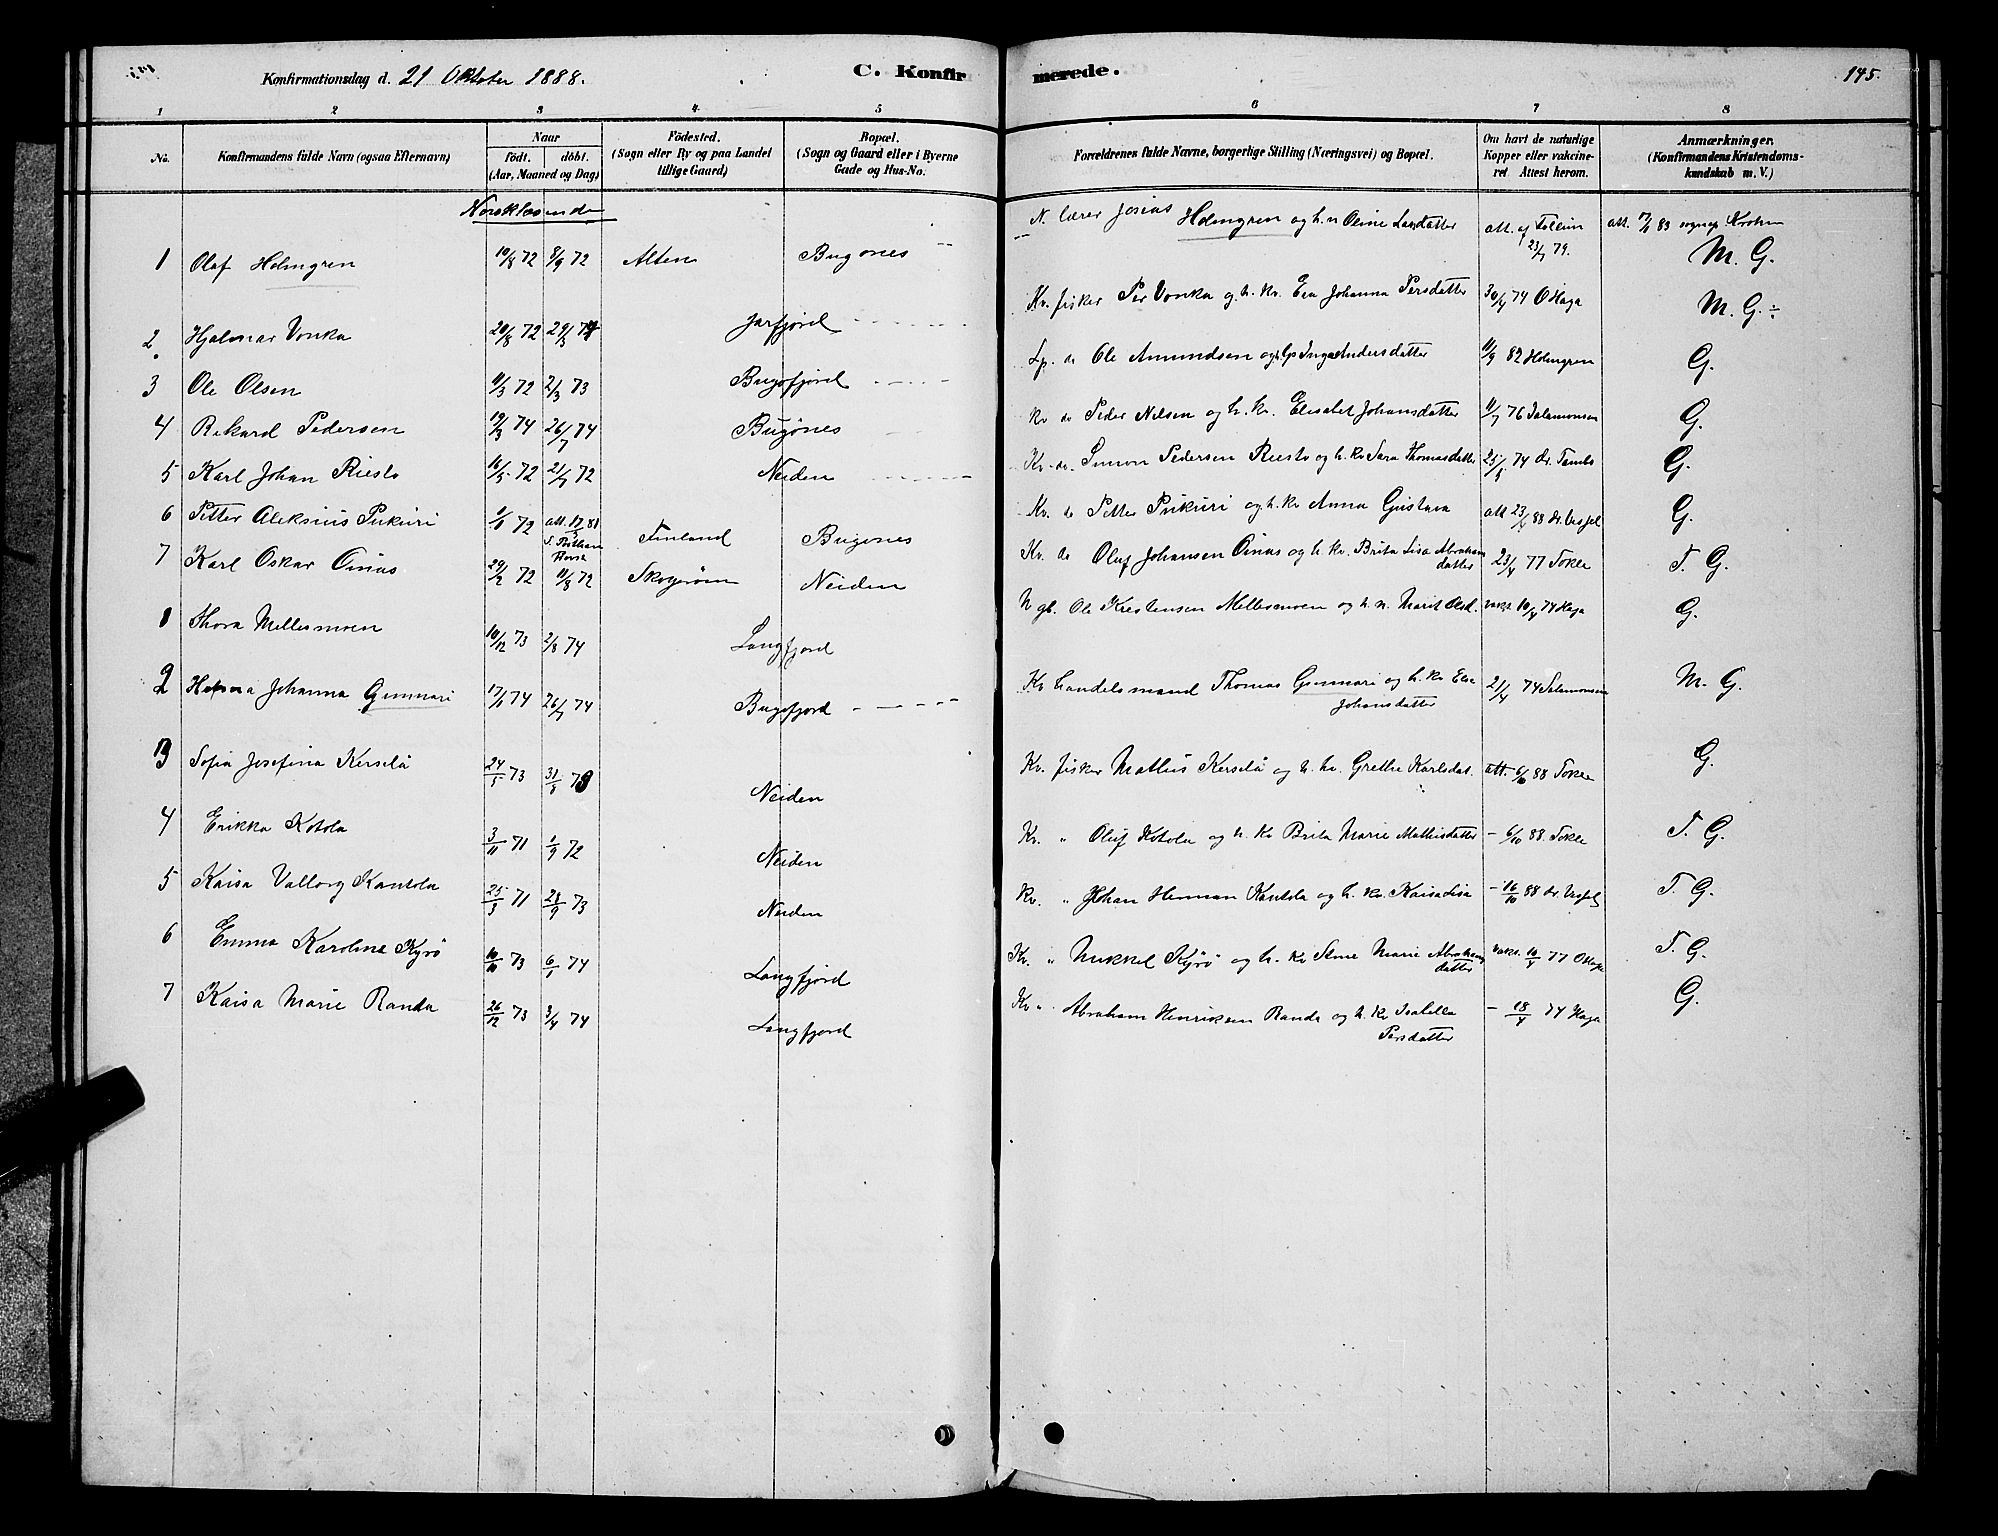 Konfirmationsdag d. 21 Oktober 1888.
C. Konfirmerede.
145.
1 2 3 4 5 6 7 8
No.
Konfirmandens fulde Navn (ogsaa Efternavn)
Naar
födt. döbt.
(Aar, Maaned og Dag)
Födested.
(Sogn eller By og paa Landet
tillige Gaard)
Bopæl.
(Sogn og Gaard eller i Byerne
Gade og Hus-No.
Forældrenes fulde Navne, borgerlige Stilling (Næringsvei) og Bopæl.
Om havt de naturlige
Kopper eller vakcine-
ret Attest herom.
Anmærkninger.
(Konfirmandens Kristendoms-
kundskab m. V.)
Norsklæsende
1 Olaf Holmgren 10/8 72 8/9 72 Alten Bugönes N. lærer Josias Holmgren og h. n Oline Larsdatter att. af 23/7 79. att. 83 M. G.
2 Hjalmar Vonka 20/8 72 29/3 74 Jarfjord Kv. fisker Per Vonka og h. kv. Eva Johanna Persdatter 30/4 74 O Haga M. G. ÷
3 Ole Olsen 11/3 72 2/3 73 Bugöfjord Lp. do Ole Amundsen og Lp Inga Andersdatter 11/9 82 Holmgren G.
4 Rikard Pedersen 19/3 74 26/7 74 Bugönes Kv do Peder Nilsen og h. kv. Elisabet Johansdatter 11/7 76 Salamonsen G.
5 Karl Johan Riesto 16/5 72 21/7 72 Neiden Kv. do. Simon Pedersen Riesto og h. kv Sara Thomasdatter 25/5 74 dr. Tambs G.
6 Petter Aleksius Pukuri 1/6 72 att. 17/ 81 Finland Bugönes Kv. do Petter Pukuri og h. kv Anna Gustava att 23/ 88 dr. Vessel G.
7 Karl Oskar Oinas 29/2 72 11/8 72 Skogerøen Neiden Kv. do Oluf Johansen Oinas og h. kv. Brita Lisa Abraham
datter 23/4 77 Tokle T. G.
1 Thora Mellesmoen 10/12 73 2/8 74 Langfjord N gb. Ole Kristensen Mellesmoen og h. n. Marit Olsd. vakc. 10/4 74 Haga G.
2 Johanna Gunnari 17/1 74 26/7 74 Bugöfjord Kv handelsmand Thomas Gunnari og h. kv Eva
Johansdatter 21/4 74 Salamonsen M. G.
3 Sofia Josefina Kerselä 24/5 73 31/8 73 Neiden Kv. fisker Mathis Kerselä og h. kv. Grethe Karlsdat. att. 6/10 88 Tokle G.
4 Erikka Kotola 3/11 71 1/9 72 Neiden Kv. " Oluf Kotola og h. kv Brita Marie Mathisdatter - 6/10 88. Tokle T. G.
5 Kaisa Valborg Kantola 25/3 71 28/9 73 Neiden Kv. " Johan Herman Kantola og h. kv. Kaisa Lisa - 16/10 88 dr. Vessel T. G.
6 Emma Karolina Kyrö 10/10 73 6/1 74 Langfjord Kv. " Mikkel Kyrö og h. kv Anne Marie Abrahams
datter vakc. 10/4 77 O Haga T. G.
7 Kaisa Marie Randa 26/12 73 3/4 74 Langfjord Kv " Abraham Henriksen Randa og h. kv Isabella
Persdatter - 18/4 74 Haga G.